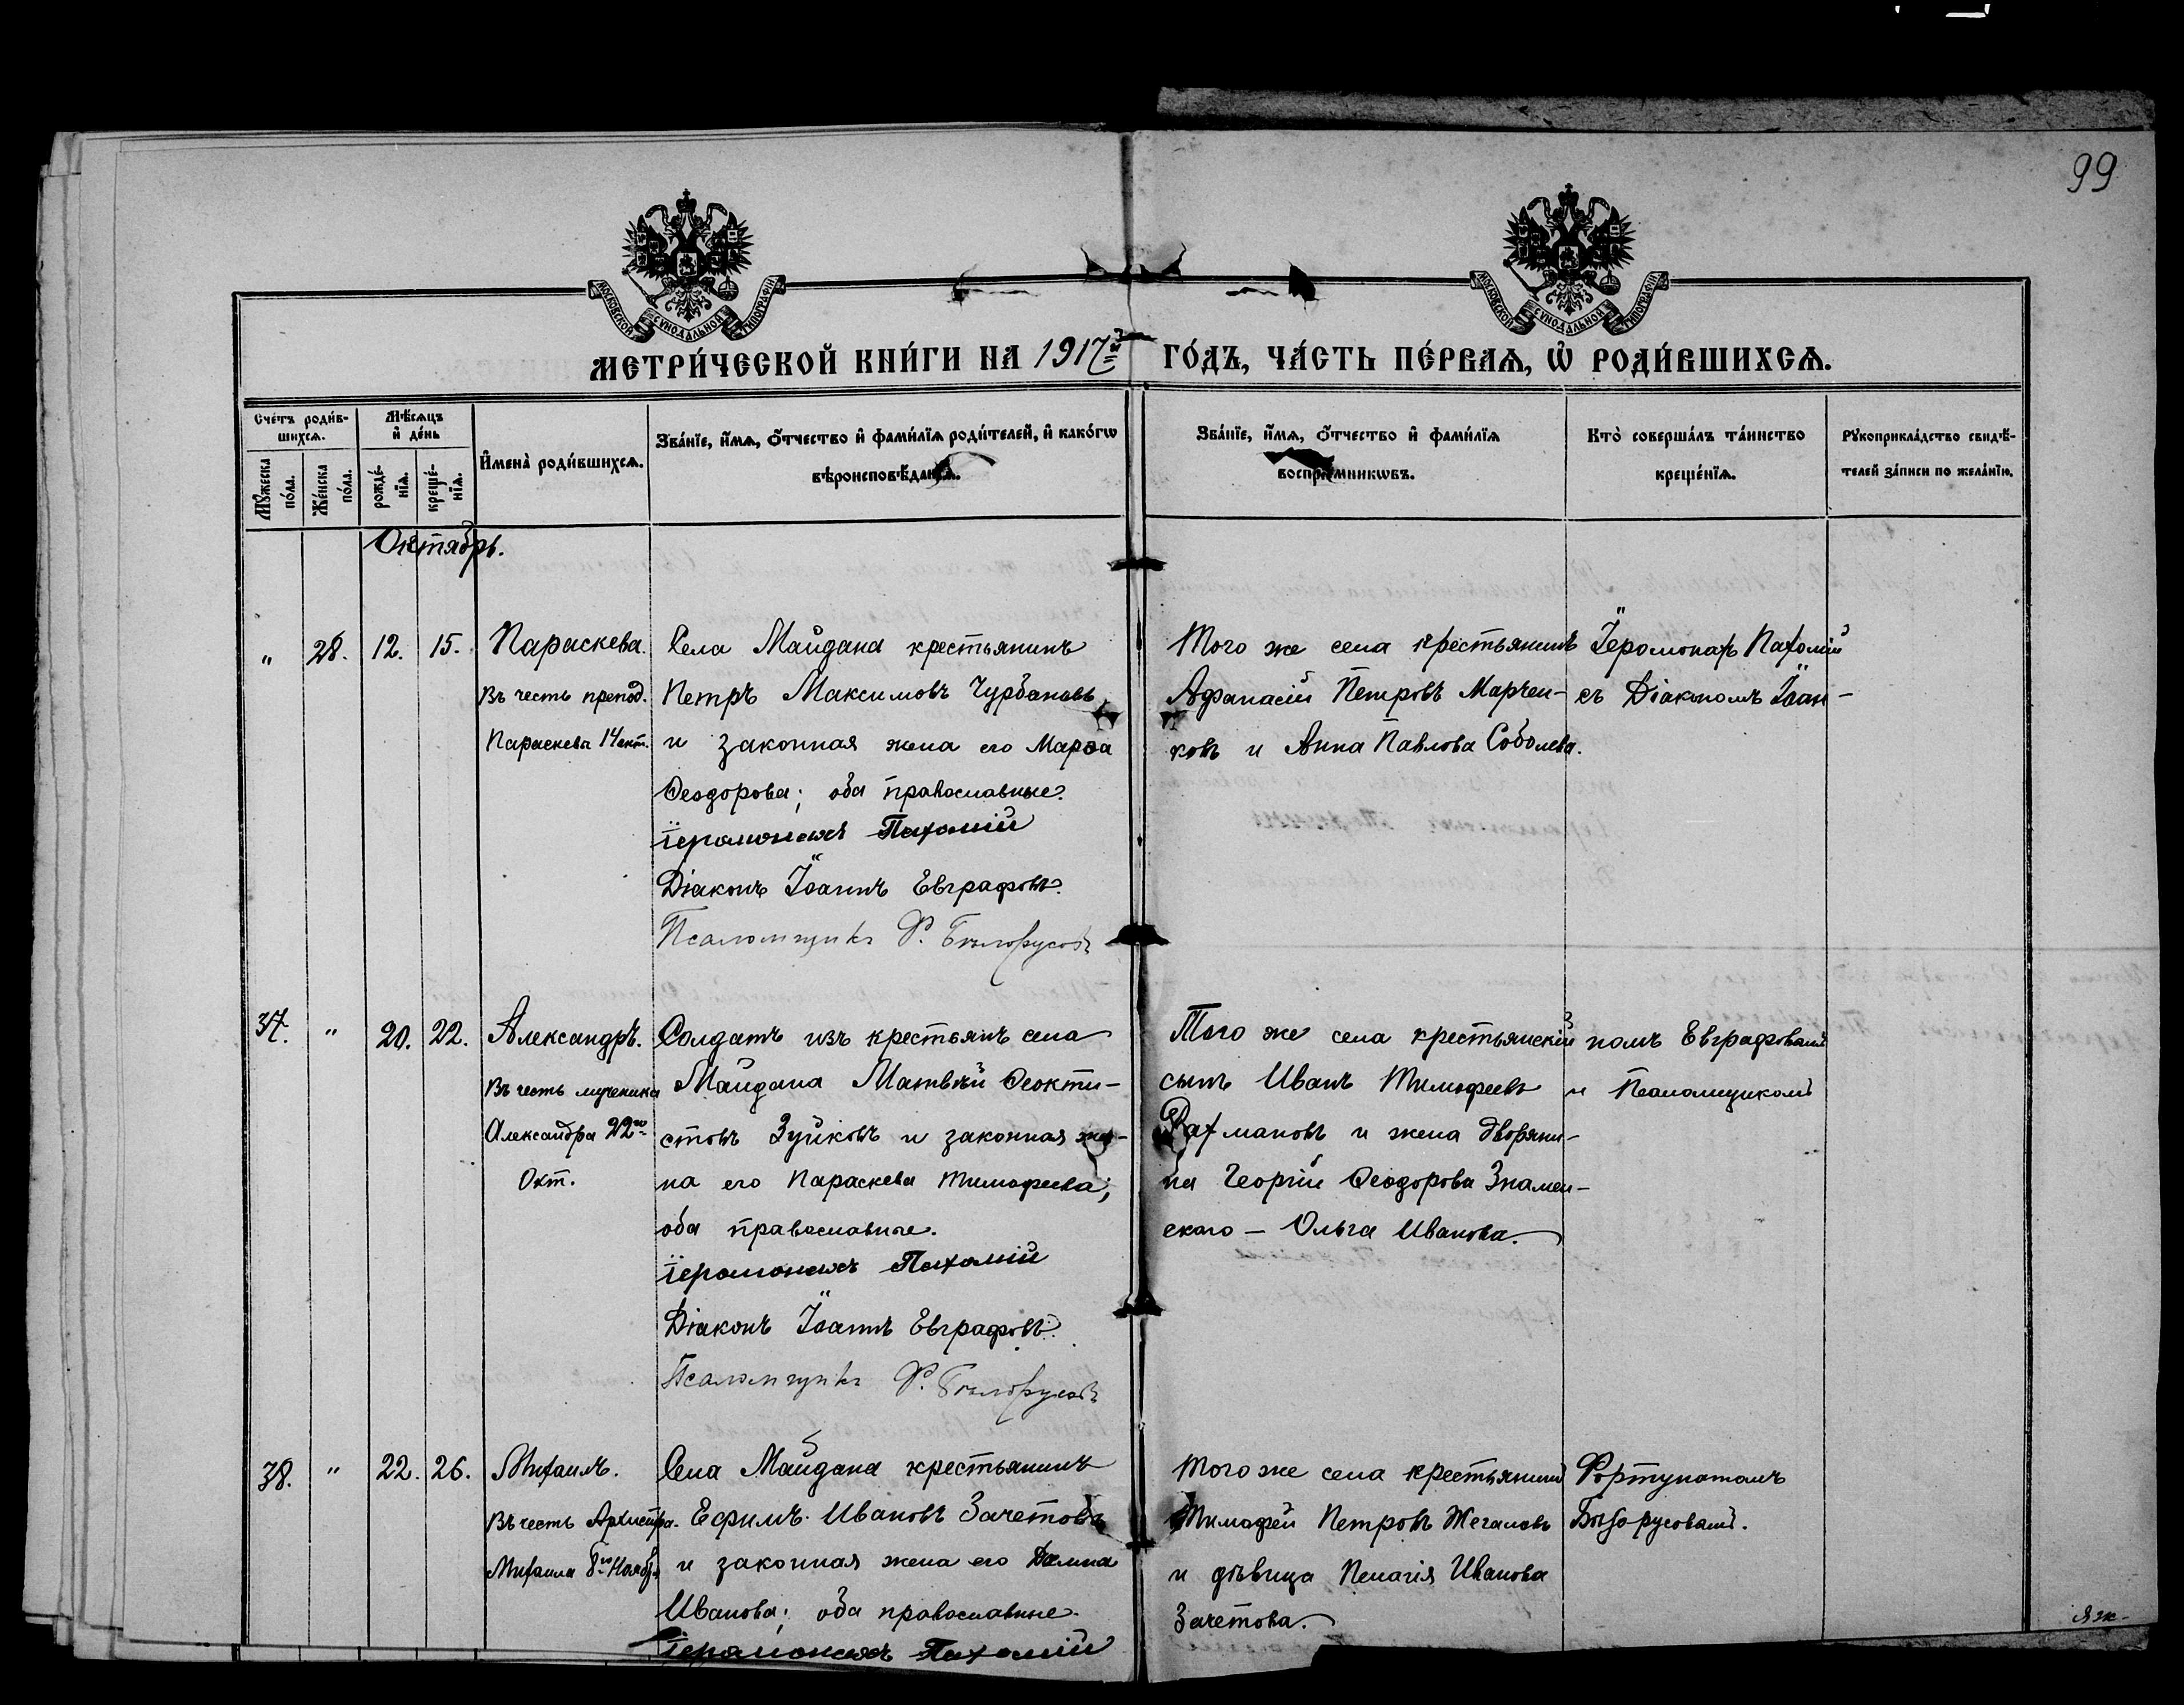 99
МОСКОВСКОЙ СѴНОДАЛЬНОЙ ТИПОГРАФІИ
МОСКОВСКОЙ СѴНОДАЛЬНОЙ ТИПОГРАФІИ
МЕТРИ́ЧЕСКОЙ КНИ́ГИ НА 1917й ГО́ДЪ, ЧА́СТЬ ПЕ́РВАѦ, Ѡ РОДИ́ВШИХСѦ.
Сче́тъ роди́вшихсѧ.
Мꙋ́жеска по́ла.
Же́нска по́ла.
Мѣ́сѧцъ и҆ де́нь
рожде́нїѧ.
креще́нїѧ.
И҆мена̀ роди́вшихсѧ.
Зва́нїе, и҆́мѧ, ѻ҆́тчество и҆ фами́лїѧ роди́телей, и҆ како́гѡ
вѣроисповѣ́данїѧ.
Зва́нїе, и҆́мѧ, ѻ҆́тчество и҆ фами́лїѧ
воспрїе́мникѡвъ.
Кто̀ соверша́лъ та́инство
креще́нїѧ.
Рꙋкоприкла́дство свидѣ́телей за́писи по жела́нїю.
Октябрь.
" 28. 12. 15. Параскева.
Въ честь препод.
Параскевы 14 окт.
Села Майдана крестьянинъ
Петръ Максимовъ Чурбановъ
и законная жена его Марѳа
Ѳеодорова; оба православные.
Іеромонахъ Пахомій
Діаконъ Іоаннъ Евграфовъ.
Псаломщикъ Ф. Бѣлорусовъ
Того же села крестьянинъ
Афанасій Петровъ Марчен-
ковъ и Анна Павлова Соболева.
Іеромонахъ Пахомій
съ Діакономъ Іоан-
37. " 20. 22. Александръ.
Въ честь мученика
Александра 22го
Окт.
Солдатъ изъ крестьянъ села
Майдана Матвѣй Ѳеокти-
стовъ Зуйковъ и законная же-
на его Параскева Тимофеева;
оба православные.
Іеромонахъ Пахомій
Діаконъ Іоаннъ Евграфовъ.
Псаломщикъ Ф. Бѣлорусовъ
Того же села крестьянскій
сынъ Иванъ Тимофеевъ
Рахмановъ и жена дворяни-
на Георгія Ѳеодорова Знамен-
скаго – Ольга Иванова.
номъ Евграфовымъ
и Псаломщикомъ
38. " 22. 26. Михаилъ.
Въ честь Архистра.
Михаила 8го Ноябр.
Села Майдана крестьянинъ
Ефимъ Ивановъ Зачетовъ
и законная жена его Домна
Иванова; оба православные.
Іеромонахъ Пахомій
Того же села крестьянинъ
Тимофей Петровъ Жегаловъ
и дѣвица Пелагія Иванова
Зачетова.
Фортунатомъ
Бѣлорусовымъ.